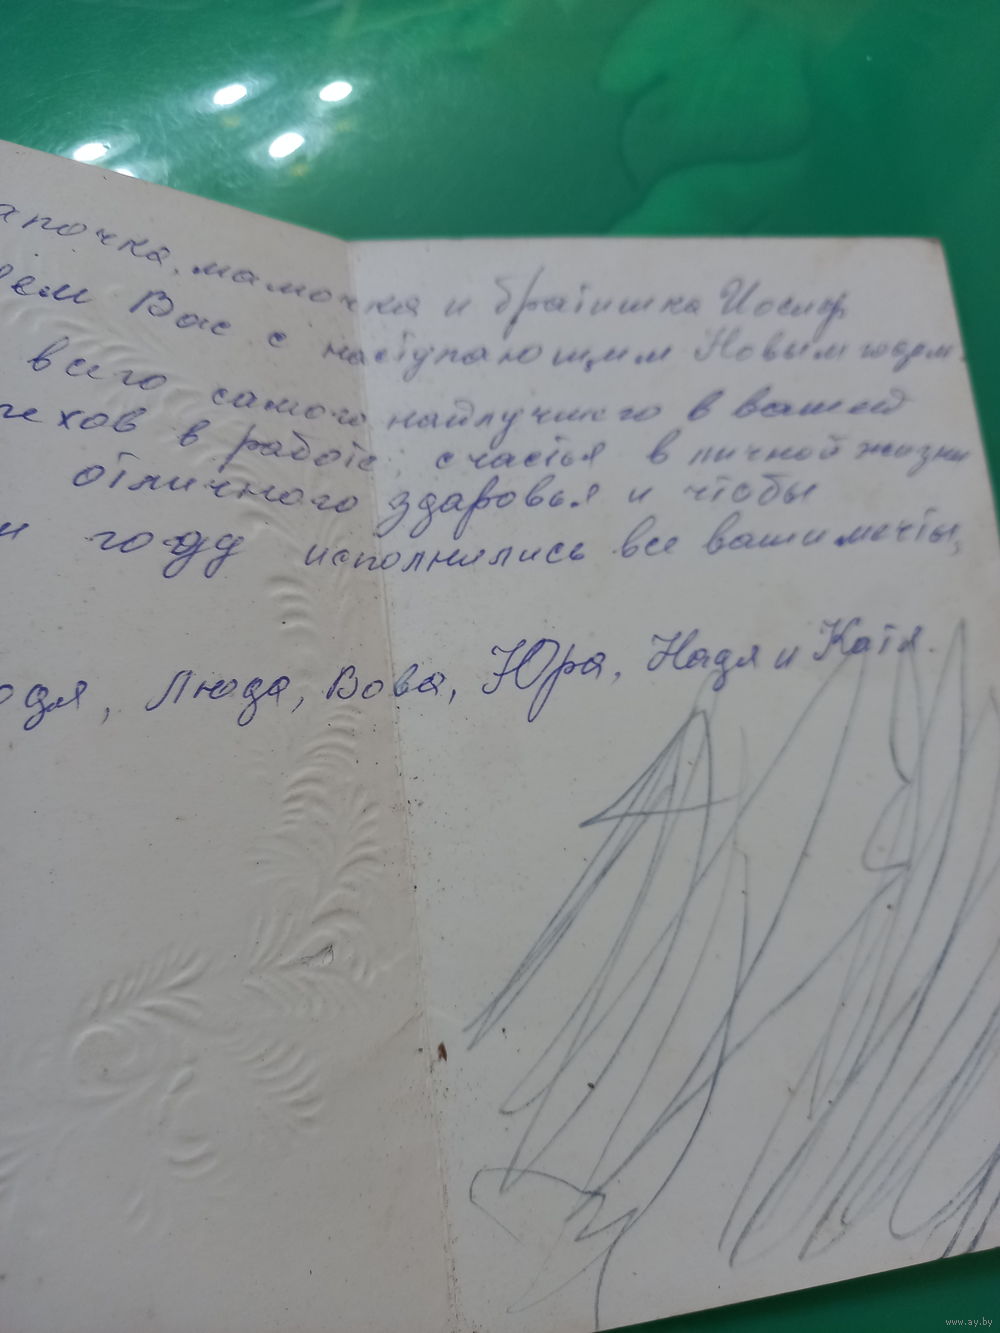 апочка, мамочка и братишка
ем Вас с наступающим Новым годом.
всего самого наилучшего в вашей
пехов в работе, счастья в личной жизни
отличного здоровья и чтобы
году исполнились все ваши мечты,
Люда, Вова, Юра, Надя и Катя.
www.ay.by